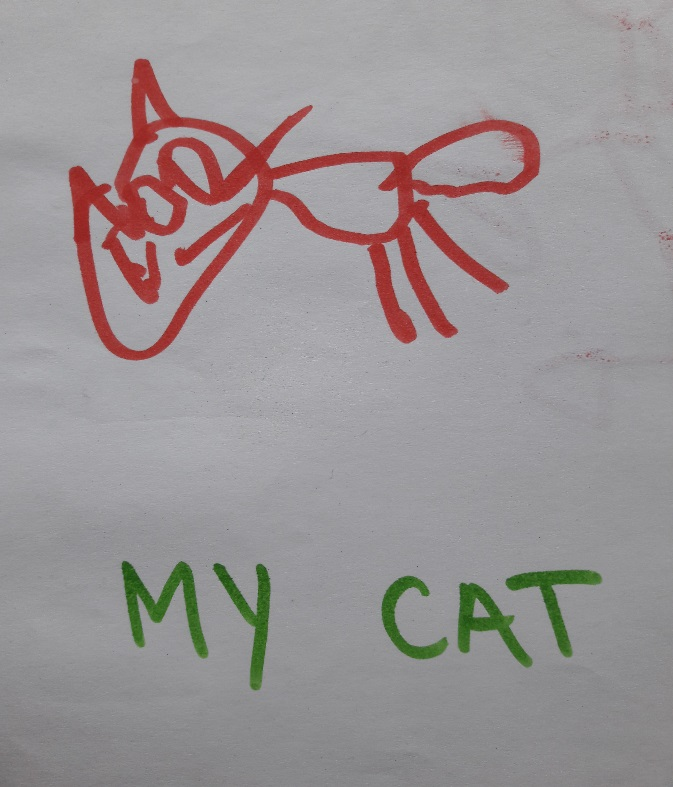 MY CAT